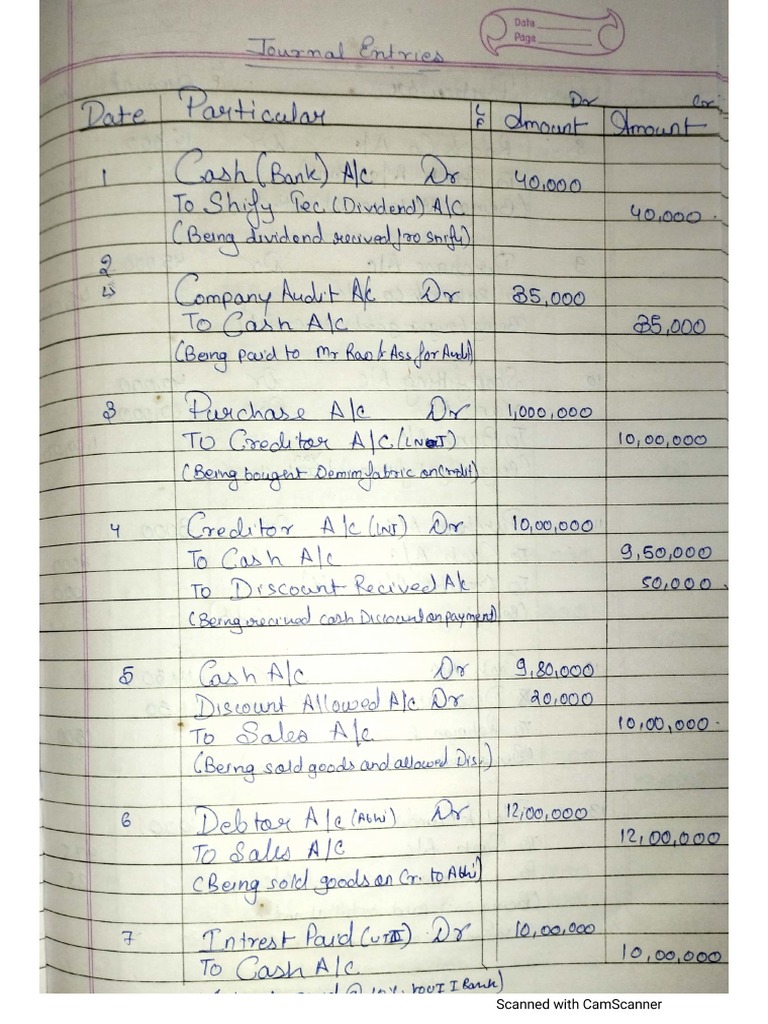 Date
Page
Journal Entries
Date Particular L F Dr Amount Cr Amount
1 Cash (Bank) A/c Dr 40,000
To Shify Tec (Dividend) A/C 40,000
(Being dividend recived fro Shify)
2 Company Audit A/c Dr 35,000
To Cash A/c 35,000
(Being paid to Mr Rao & Ass for Audit)
3 Purchase A/c Dr 1,000,000
To Creditor A/C 10,00,000
(Being bought Demim fabric on Credit)
4 Creditor A/c (LNT) Dr 10,00,000
To Cash A/c 9,50,000
To Discount Recived A/c 50,000
(Being recived cash Discount on payment)
5 Cash A/c Dr 9,80,000
Discount Allowed A/c Dr 20,000
To Sales A/c 10,00,000
(Being sold goods and allowed Dis.)
6 Debtor A/c (Abhi) Dr 12,00,000
To Sales A/C 12,00,000
(Being sold goods on Cr. to Abhi)
7 Intrest Paid Dr 10,00,000
To Cash A/c 10,00,000
Bank)
Scanned with CamScanner